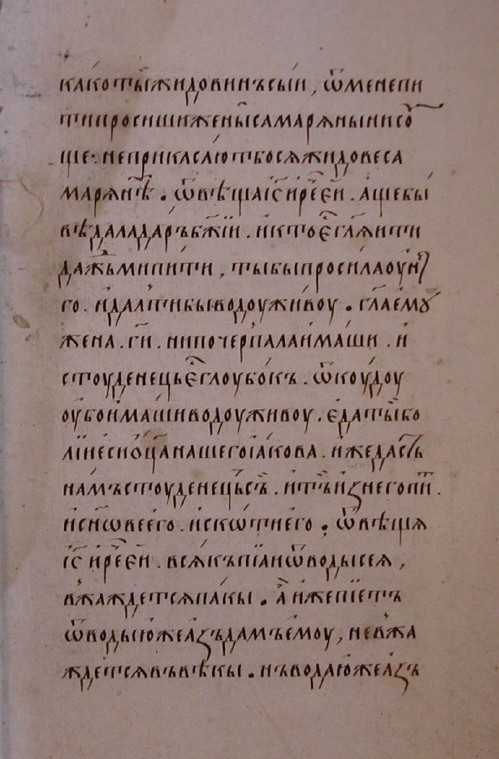 како ты жидовинъ сыи, ѿ мене пи
ти просиши жены самаряныни сѹ
ще. не прикасают бо ся жидове са
маряне҄. ѿвѣща іс҃ и рече еи. аще бы
вѣдала даръ бж҃іи. и кто е҄ гл҃яи ти
даждь ми пити, ты бы просила оу не
го. и дал ти бы водоу живоу. гл҃а емꙋ
жена. гн҃. ни почерпала имаши. и
стоуденець е҄ глоубокъ. ѿкоудоу
оубо имаши водоу живоу. еда ты бо
лїи еси оц҃а нашего іакова. иже дасть
намъ стоуденець сь. и тъ из него пи.
и сн҃ове его. и скоти его. ѿвѣща
іс҃ и рече еи. всякъ піаи ѿ воды сея,
вжаждется пакы. а иже піетъ
ѿ воды юже азъ дамъ емоу, не вжа
ждется въ вѣкы. нъ вода юже азъ